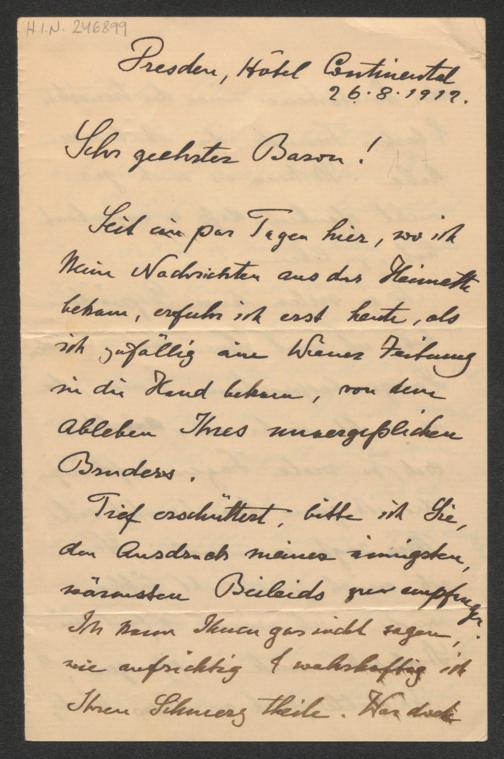 H.I.N. 246899
Dresden, Hôtel Continental
26.8.1912.
Sehr geehrter Baron!
Seit ein par Tagen hier, wo ich
keine Nachrichten aus der Heimath
bekam, erfuhr ich erst heute, als
ich zufällig eine Wiener Zeitung
in die Hand bekam, von dem
Ableben Ihres unvergeßlichen
Bruders.
Tief erschüttert, bitte ich Sie,
den Ausdruck meines innigsten,
wärmsten Beileids zu empfangen.
Ich kann Ihnen gar nicht sagen,
wie aufrichtig & wahrhaftig ich
Ihren Schmerz theile. War doch